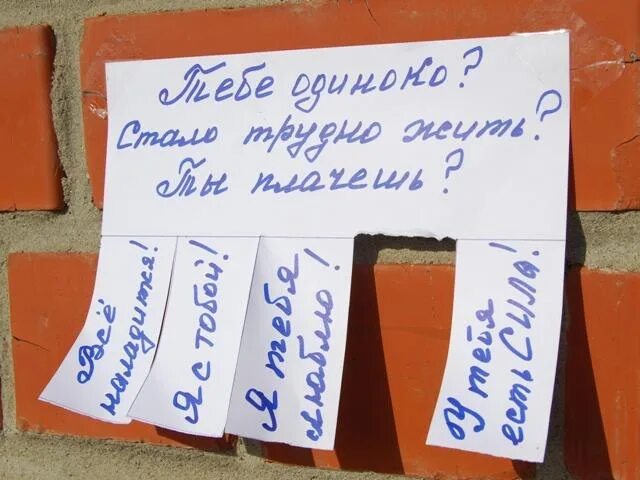 Тебе одиноко?
Стало трудно жить?
Ты плачешь?
Всё
наладится!
Я с тобой!
Я тебя
люблю!
У тебя
есть СИЛА!